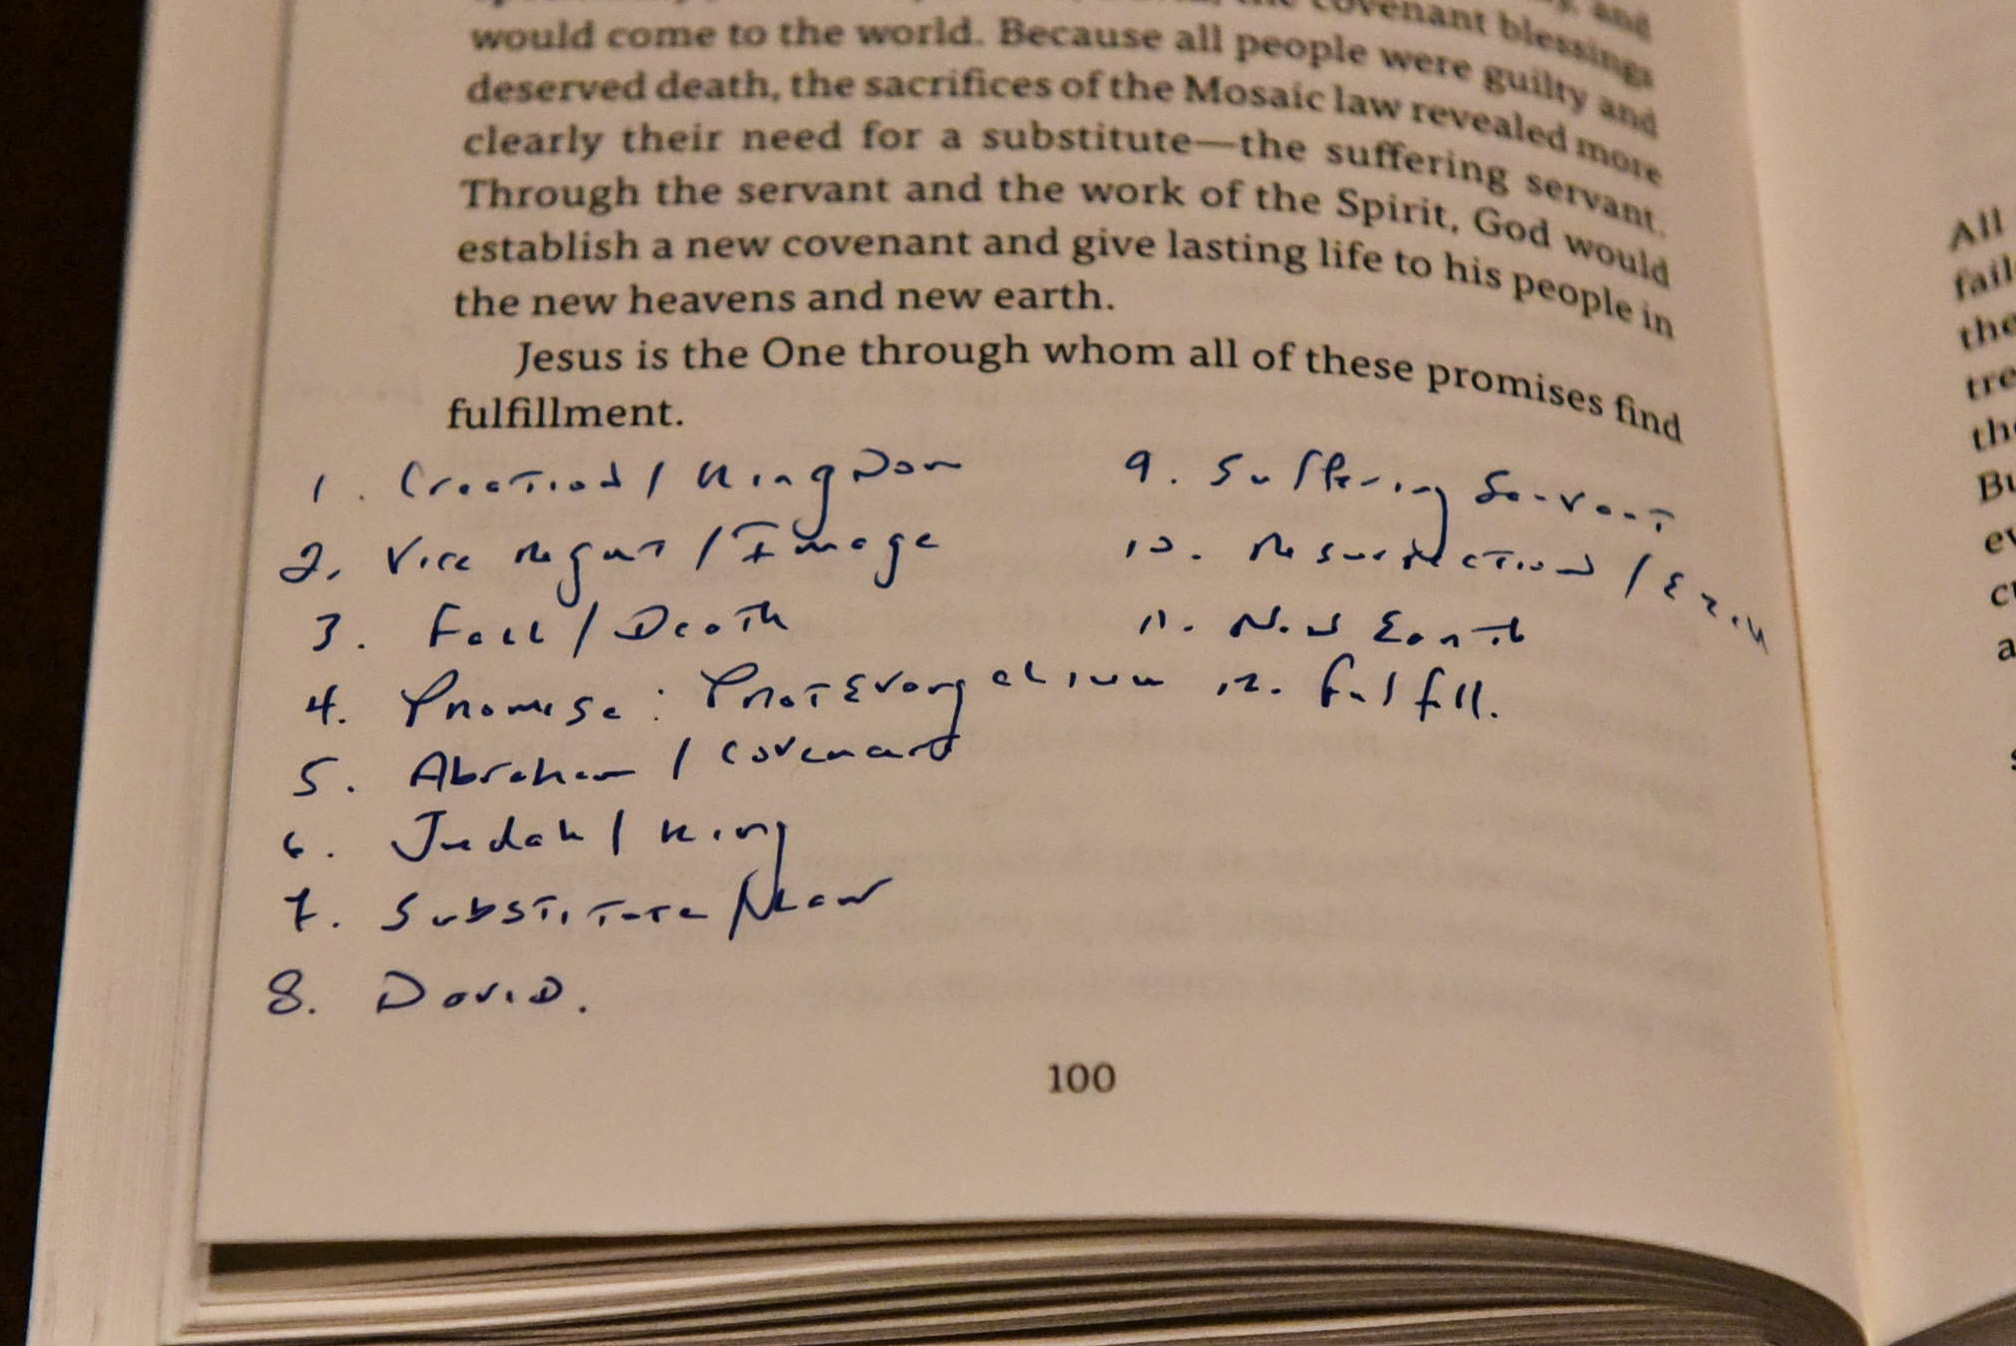 covenant blessings
would come to the world. Because all people were guilty and
deserved death, the sacrifices of the Mosaic law revealed more
clearly their need for a substitute—the suffering servant.
Through the servant and the work of the Spirit, God would
establish a new covenant and give lasting life to his people in
the new heavens and new earth.
Jesus is the One through whom all of these promises find
fulfillment.
1. Creation / Kingdom
2. Vice Regent / Image
3. Fall / Death
4. Promise: ProtEvangelium
5. Abraham / Covenant
6. Judah / King
7. Substitute / Law
8. David.
9. Suffering Servant
10. Resurrection /
11. New Earth
12. Fulfill.
100
All
the